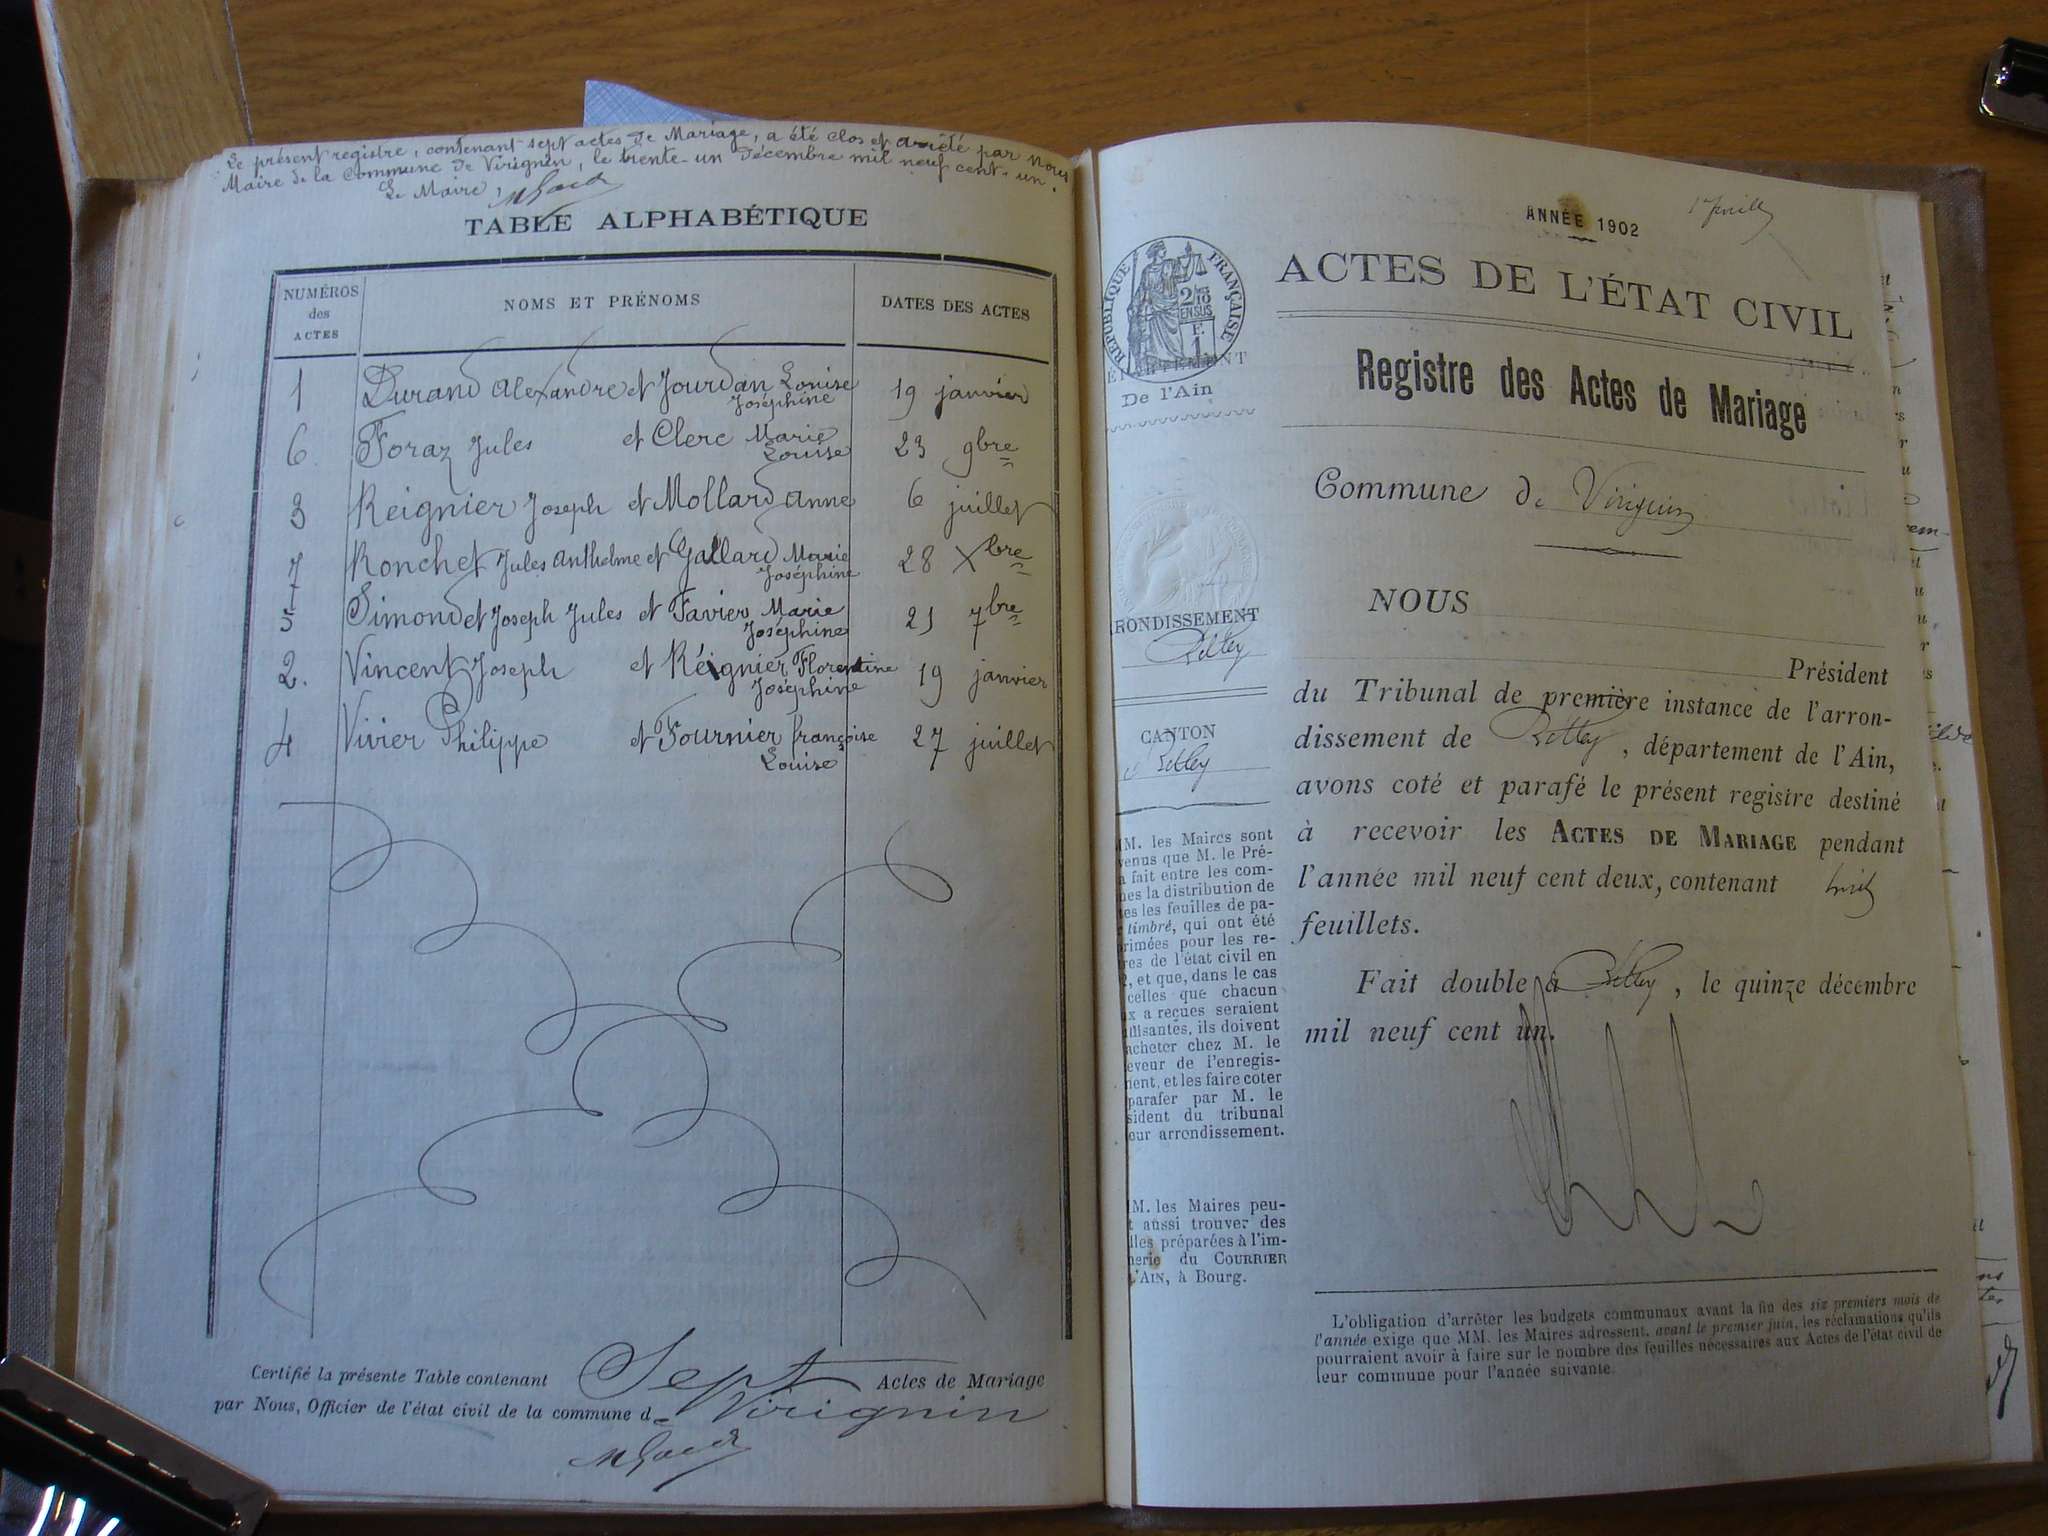 Le présent registre, contenant sept actes de Mariage, a été clos et arrêté par Nous
Maire de la Commune de Virignin, le trente-un Décembre mil neuf cent-un.
Le Maire,
TABLE ALPHABÉTIQUE
NUMÉROS des ACTES NOMS ET PRÉNOMS DATES DES ACTES
1 Durand Alexandre et Jourdan Louise Joséphine 19 janvier
6 Foraz Jules et Clerc Marie Louise 23 9bre
3 Reignier Joseph et Mollard Anne 6 juillet
7 Ronchet Jules Anthelme et Gallard Marie Joséphine 28 Xbre
5 Simond et Joseph Jules et Favier Marie Joséphine 21 7bre
2. Vincent Joseph et Réignier Florentine Joséphine 19 janvier
4 Vivier Philippe et Fournier françoise Louise 27 juillet
Certifié la présente Table contenant Sept Actes de Mariage
par Nous, Officier de l'état civil de la commune de Virignin
ANNÉE 1902
1er feuillet
RÉPUBLIQUE FRANÇAISE
ACTES DE L'ÉTAT CIVIL
De l'Ain
Registre des Actes de Mariage
Commune de Virignin
NOUS
RONDISSEMENT
Belley
Président
du Tribunal de première instance de l'arron-
dissement de Belley, département de l'Ain,
avons coté et parafé le présent registre destiné
à recevoir les ACTES DE MARIAGE pendant
l'année mil neuf cent deux, contenant
feuillets.
Fait double à Belley, le quinze décembre
mil neuf cent un.
CANTON
Belley
MM. les Maires sont
venus que M. le Pré-
a fait entre les com-
nes la distribution de
tes les feuilles de pa-
timbré, qui ont été
rimées pour les re-
res de l'état civil en
2, et que, dans le cas
celles que chacun
ux a reçues seraient
uffisantes, ils doivent
acheter chez M. le
eveur de l'enregis-
ment, et les faire coter
parafer par M. le
sident du tribunal
eur arrondissement.
MM. les Maires peu-
t aussi trouver des
lles préparées à l'im-
merie du COURRIER
L'AIN, à Bourg.
L'obligation d'arrêter les budgets communaux avant la fin des six premiers mois de
l'année exige que MM. les Maires adressent, avant le premier juin, les réclamations qu'ils
pourraient avoir à faire sur le nombre des feuilles nécessaires aux Actes de l'état civil de
leur commune pour l'année suivante.